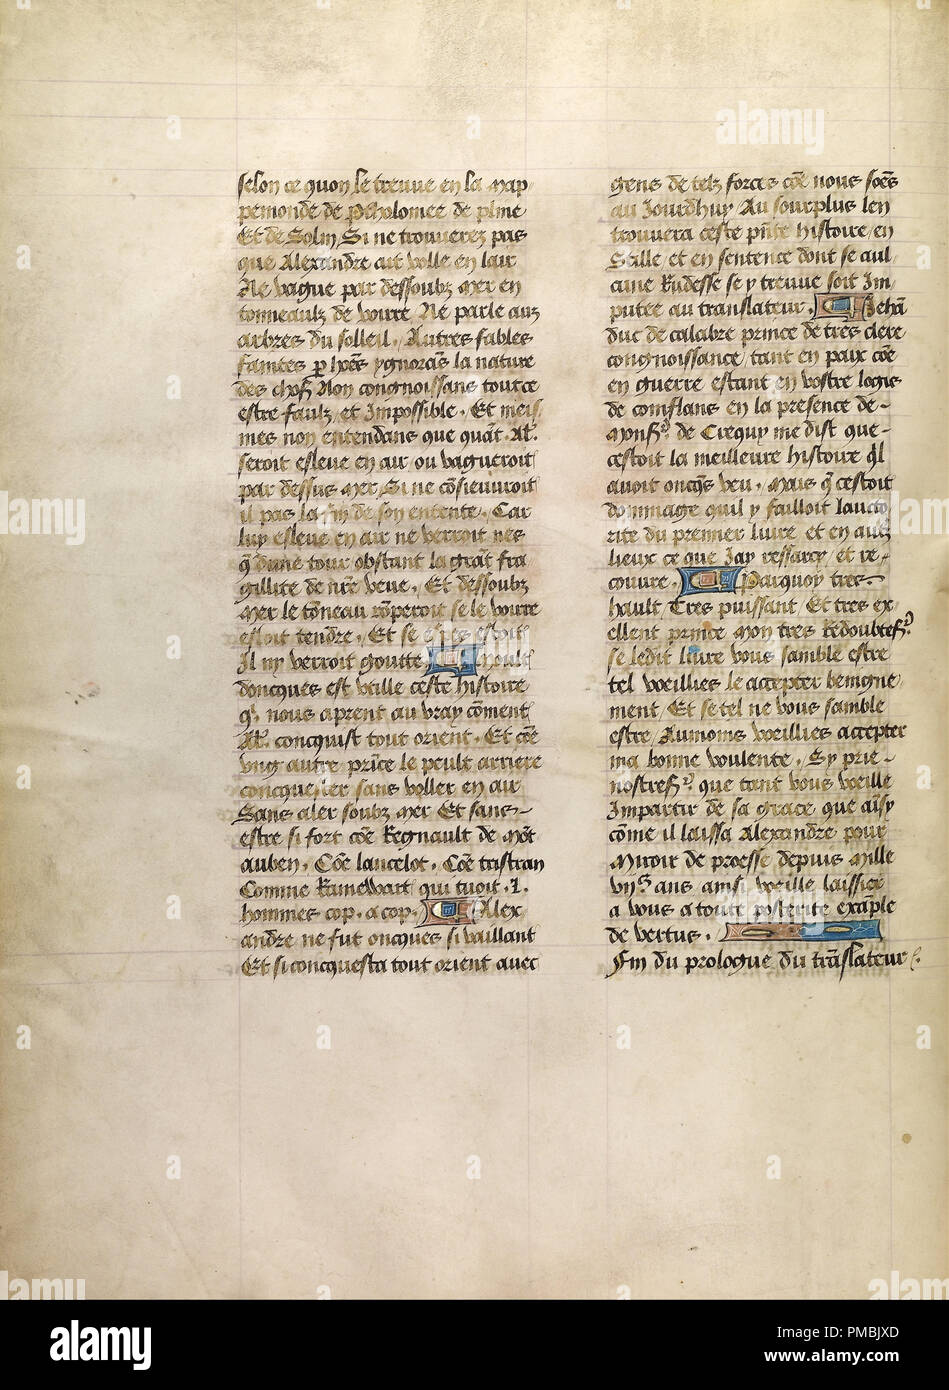 selon ce quon le treuue en la map
pemonde de Ptholomee de pline
Et de Solin Si ne trouuerez pas
que Alexandre ait volle en lair
Ne vague par dessoubz mer en
tonneaulz de voirre Ne parle auz
arbres du solleil. Autres fables
faintes p hōes ygnorās la nature
des chos̄ Non congnoissans tout ce
estre faulz et Impossible. Et meis/
mes non entendans que quāt Al'.
seroit esleue en air ou vagueroit
par dessus mer Si ne cōsieuuroit
il pas la fin de son entente. Car
luy esleue en air ne verroit nes
q̄ dune tour obstant la grāt fra
gillite de nr̄e veue. Et dessoubz
mer le tōneau rōperoit se le voirre
estoit tendre. Et se espes estoit
Il ny verroit goutte Moult
doncques est vtille ceste histoire
q' nous aprent au vray cōment
Al'. conquist tout orient. Et cōe
vng autre prīce le peult arriere
conquester sans voller en air
Sans aler soubz mer Et sans
estre si fort cōe Regnault de mōt
auben. Cōe lancelot. Cōe tristran
Comme Rainewart qui tuoit .L.
hommes cop. a cop. Alex
andre ne fut oncques si vaillant
Et si conquesta tout orient auec
gens de telz forces cōe nous sōēs
au Jourdhuy Au sourplus len
trouuera ceste pn̄te histoire en
Stille et en sentence dont se aul
cune Rudesse se y treuue soit Im
putee au translateur. Jehā
duc de calabre prince de tres clere
congnoissance tant en paix cōe
en guerre estant en vostre logis
de conflans en la presence de
Mons.' de Crequy me dist que
cestoit la meilleure histoire q̄l
auoit oncq̄s veu. Mais q̄ cestoit
dommage quil y failloit laucto
rite du premier liure et en autz
lieux ce que Jay ressarcy et re
couure. Parquoy tres
hault Tres puissant Et tres ex
ellent prince Mon tres Redoubte s.'
se ledit liure vous samble estre
tel voeillies le accepter benigne
ment Et se tel ne vous samble
estre Aumoins voeillies accepter
ma bonne voulente. Sy prie
nostre s.' que tant vous voeille
Impartir de sa grace que aīsy
cōme il laissa Alexandre pour
Miroir de proesse depuis mille
vijᶜ ans ainsi voeille laissier
a vous a toute posterite exāple
de vertus.
Fin du prologue du trāslateur
alamy
Image ID: PMBJXD
www.alamy.com